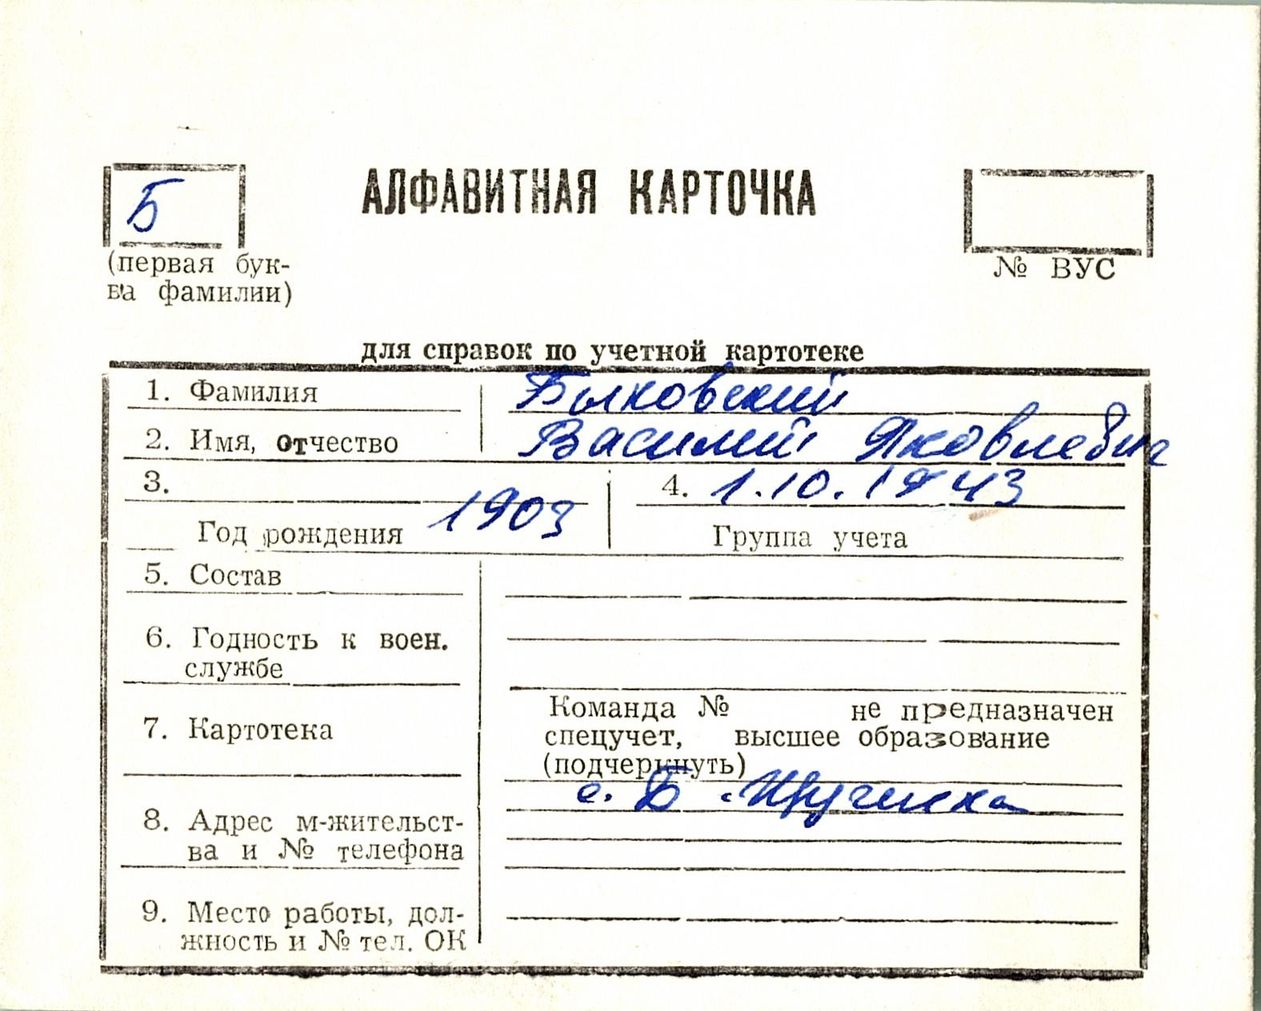 Б
АЛФАВИТНАЯ КАРТОЧКА
(первая бук-
ва фамилии)
№ ВУС
для справок по учетной картотеке
1. Фамилия Быковский
2. Имя, отчество Василий Яковлевич
3. 1903 4. 1.10.1943
Год рождения Группа учета
5. Состав
6. Годность к воен.
службе
7. Картотека
Команда № не предназначен
спецучет, высшее образование
(подчеркнуть)
с. Б.
8. Адрес м-жительст-
ва и № телефона
9. Место работы, дол-
жность и № тел. ОК